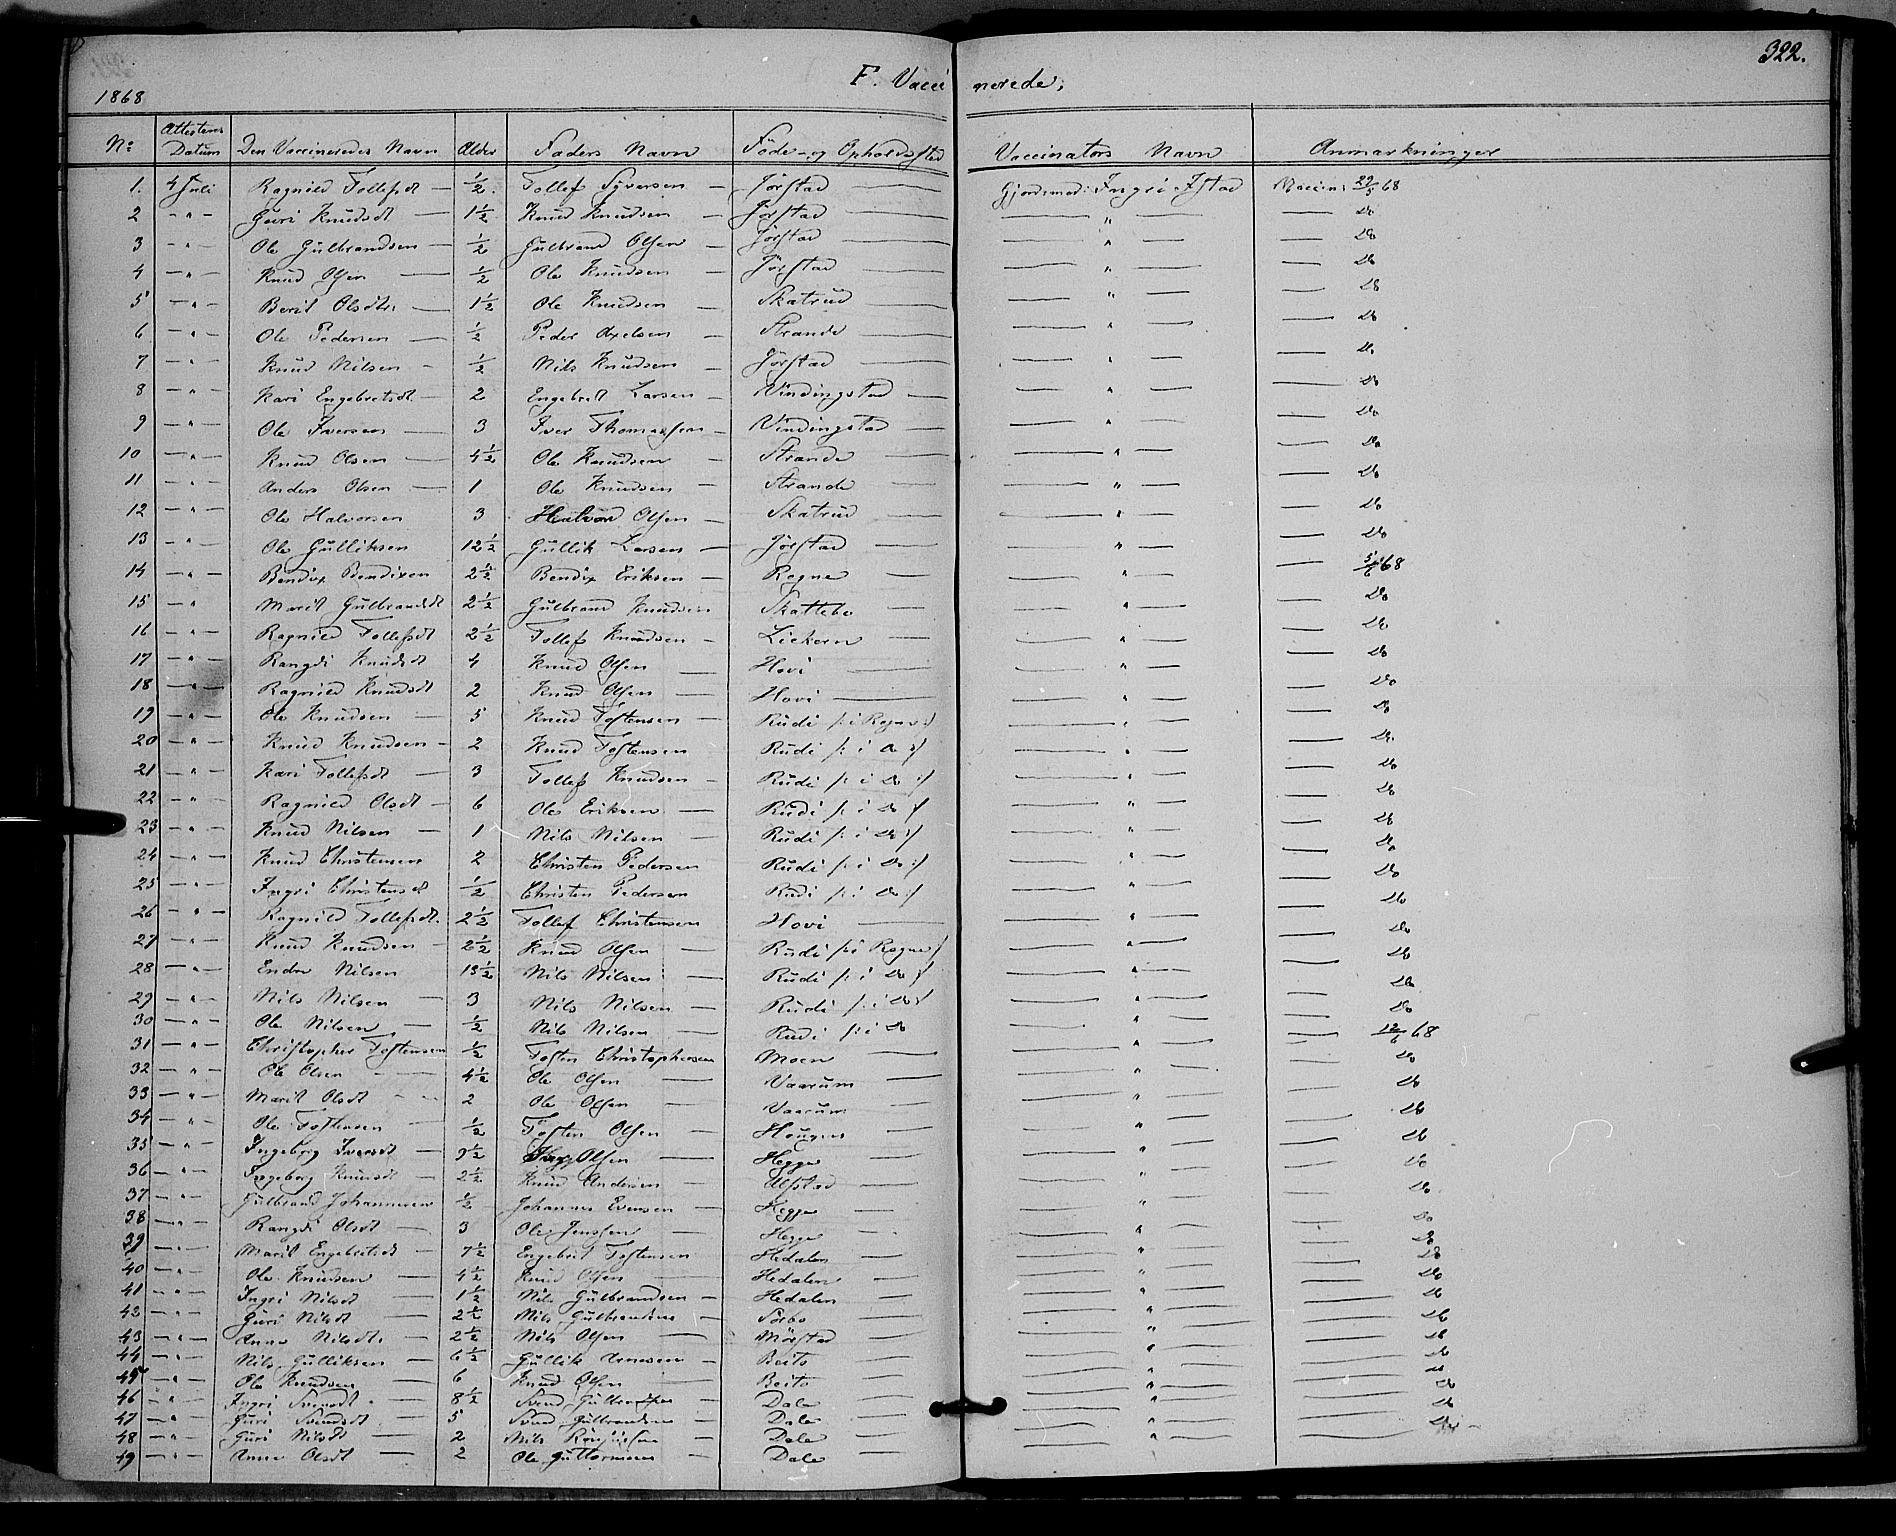 322.
F. Vacci nerede.
1868
No Attestens Datum Den Vaccineredes Navn Alder Faders Navn Føde- og Opholdssted Vaccinators Navn Anmærkninger
1. 4 Juli Ragnild Tollefsdt — ½. Tollef Syversen — Jørstad Gjordemod: Ingri Istad Vaccin: 29/5 68
2 — " — Guri Knudsdt — 1½ Knud Knudsen — Jørstad — " — — Do
3 — " — Ole Gulbrandsen — ½ Gulbrand Olsen — Jørstad — " — — Do
4 — " — Knud Olsen — ½ Ole Knudsen — Jørstad — " — — Do
5 — " — Berit Olsdtr. — 1½ Ole Knudsen — Skatrud — " — — Do
6 — " — Ole Pedersen — ½ Peder Axelsen — Strande — " — — Do
7 — " — Knud Nilsen — ½ Nils Knudsen — Jørstad — " — — Do
8 — " — Kari Engebretsdt. — 2 Engebret Larsen — Vindingstad — " — — Do
9 — " Ole Iversen — 3 Iver Thomassen — Vindingstad — " — — Do
10 — " — Knud Olsen — 4½ Ole Knudsen — Strande — " — — Do
11 — " — Anders Olsen — 1 Ole Knudsen — Strande — " — — Do
12 — " — Ole Halvorsen 3 Halvord Olsen — Skatrud — " — — Do
13 — " — Ole Gulliksen 12½ Gullik Larsen — Jørstad — " — — Do
14 — " — Bendix Bendixen 2½ Bendix Eriksen — Rogne — " — — 5/6 68
15 — " Marit Gulbrandsdt 2½ Gulbrand Knudsen Skattebo — " — — Do
16 — " — Ragnild Tollefsdt 2½ Tollef Knudsen — Liekern — " — — Do
17 — " — Rangdi Knudsdt 4 Knud Olsen — Hovi — " — — Do
18 — " — Ragnild Knudsdt 2 Knud Olsen — Hovi — " — — Do
19 — " — Ole Knudsen — 5 Knud Tostensen — Rudi /: i Rogne :/ — " — — Do
20 — " — Knud Knudsen — 2 Knud Tostensen Rudi /: i Do :/ — " — — Do
21 — " — Kari Tollefsdt — 3 Tollef Knudsen — Rudi /: i Do :/ — " — — Do
22 — " — Ragnild Olsdt — 6 Ole Eriksen — Rudi /: i Do :/ — " — — Do
23 — " — Knud Nilsen — 1 Nils Nilsen — Rudi /: i Do :/ — " — — Do
24 — " — Knud Christensen 2 Christen Pedersen Rudi /: i Do :/ — " — — Do
25 — " — Ingri Christensdt ½ Christen Pedersen Rudi /: i Do :/ — " — — Do
26 — " — Ragnild Tollefsdt. 2½ Tollef Christensen Hovi — " — — Do
27 — " — Knud Knudsen — 2½ Knud Olsen — Rudi /: i Rogne :/ — " — — Do
28 — " — Endre Nilsen 13½ Nils Nilsen — Rudi /: i Do :/ — " — — Do
29 — " — Nils Nilsen — 3 Nils Nilsen — Rudi /: i Do :/ — " — — Do
30 — " — Ole Nilsen — ½ Nils Nilsen — Rudi /: i Do — " — — Do
31 — " — Christopher Tostensen ½ Tosten Christophersen Moen — " — — 12/6 68
32 — " — Ole Olsen — 4½ Ole Olsen — Vaarum — " — — Do
33 — " — Marit Olsdt — 2 Ole Olsen — Vaarum — " — — Do
34 — " — Ole Tostensen — ½ Tosten Olsen — Hougen — " — — Do
35 — " — Ingeborg Iversdt — 9½ Olsen — Hegge — " — — Do
36 — " — Ingeborg Knudsdt — 2½ Knud Andersen — Ulstad — " — — Do
37 — " — Gulbrand Johannesen ½ Johannes Evensen — Hegge — " — — Do
38 — " — Rangdi Olsdt — 3 Ole Jenssen — Hegge — " — — Do
39 — " — Marit Engebretsdt — 7½ Engebret Tostensen Hedalen — " — — Do
40 — " — Ole Knudsen — 4½ Knud Olsen — Hedalen — " — — Do
41 — " — Ingri Nilsdt — 1½ Nils Gulbrandsen — Hedalen — " — — Do
42 — " — Guri Nilsdt — 2½ Nils Gulbrandsen — Sørbo — " — — Do
43 — " — Anne Nilsdt. — 2½ Nils Olsen — Mørstad — " — — Do
44 — " — Nils Gulliksen — 6½ Gullik Arnesen — Beito — " — — Do
45 — " — Ole Knudsen — 6 Knud Olsen — Beito — " — — Do
46 — " — Ingri Svensdt — 8½ Svend Gulbrandsen Dale — " — — Do
47 — " — Guri Svendsdt — 5 Svend Gulbrandsen — Dale — " — — Do
48 — " — Guri Nilsdt — 2 Nils — Dale — " — — Do
49 — " — Anne Olsdt — 2 Ole Guttormsen Dale — " — — Do